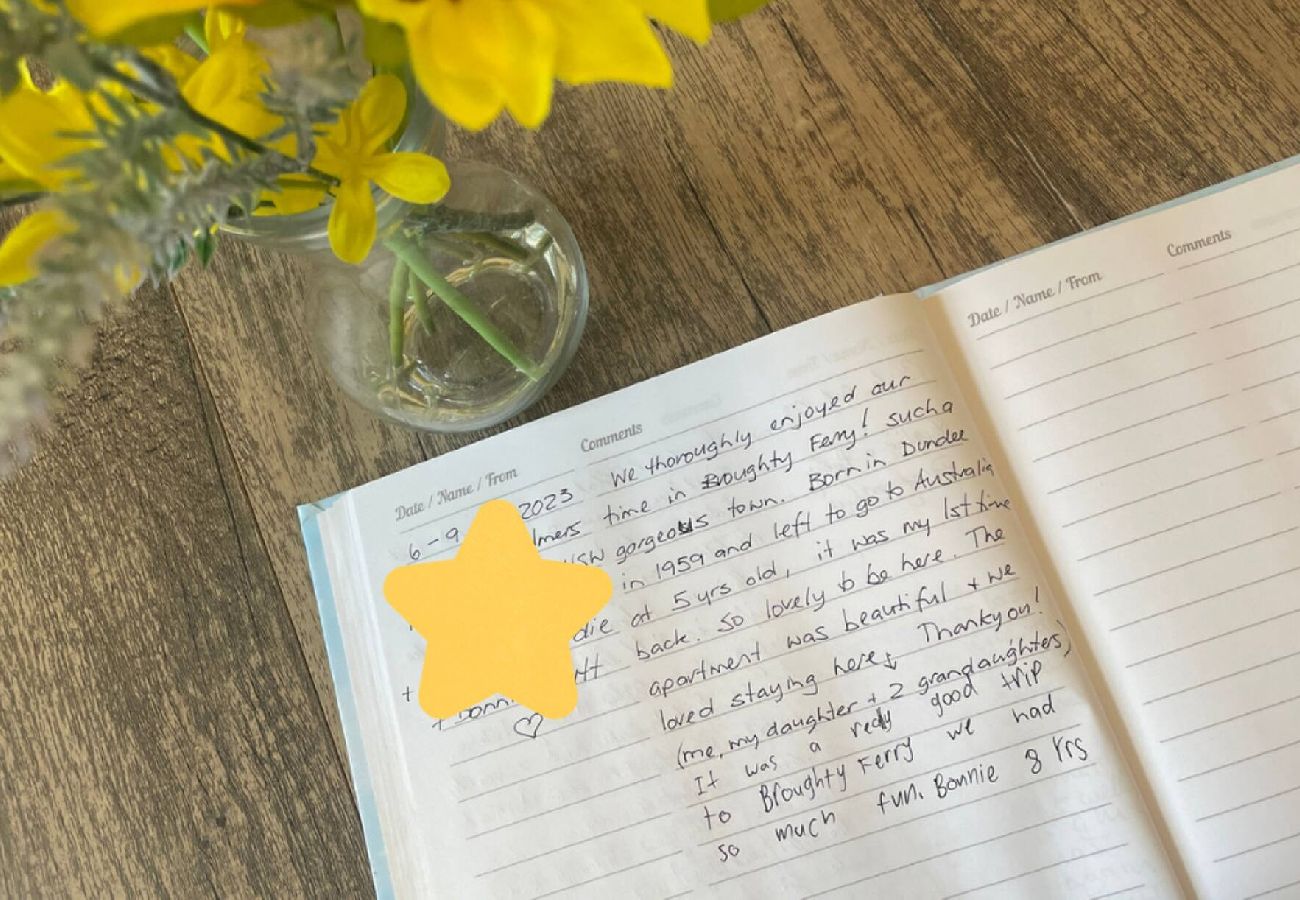 Date / Name / From
Comments
6 - 9 2023
We thoroughly enjoyed our
time in Broughty Ferry! such a
NSW gorgeous town. Born in Dundee
in 1959 and left to go to Australia
at 5 yrs old, it was my 1st time
back. So lovely to be here. The
apartment was beautiful + we
loved staying here. Thankyou!
(me, my daughter + 2 grandaughters)
It was a really good trip
to Broughty Ferry we had
so much fun. Bonnie 8 Yrs
+
+
♡
Date / Name / From
Comments